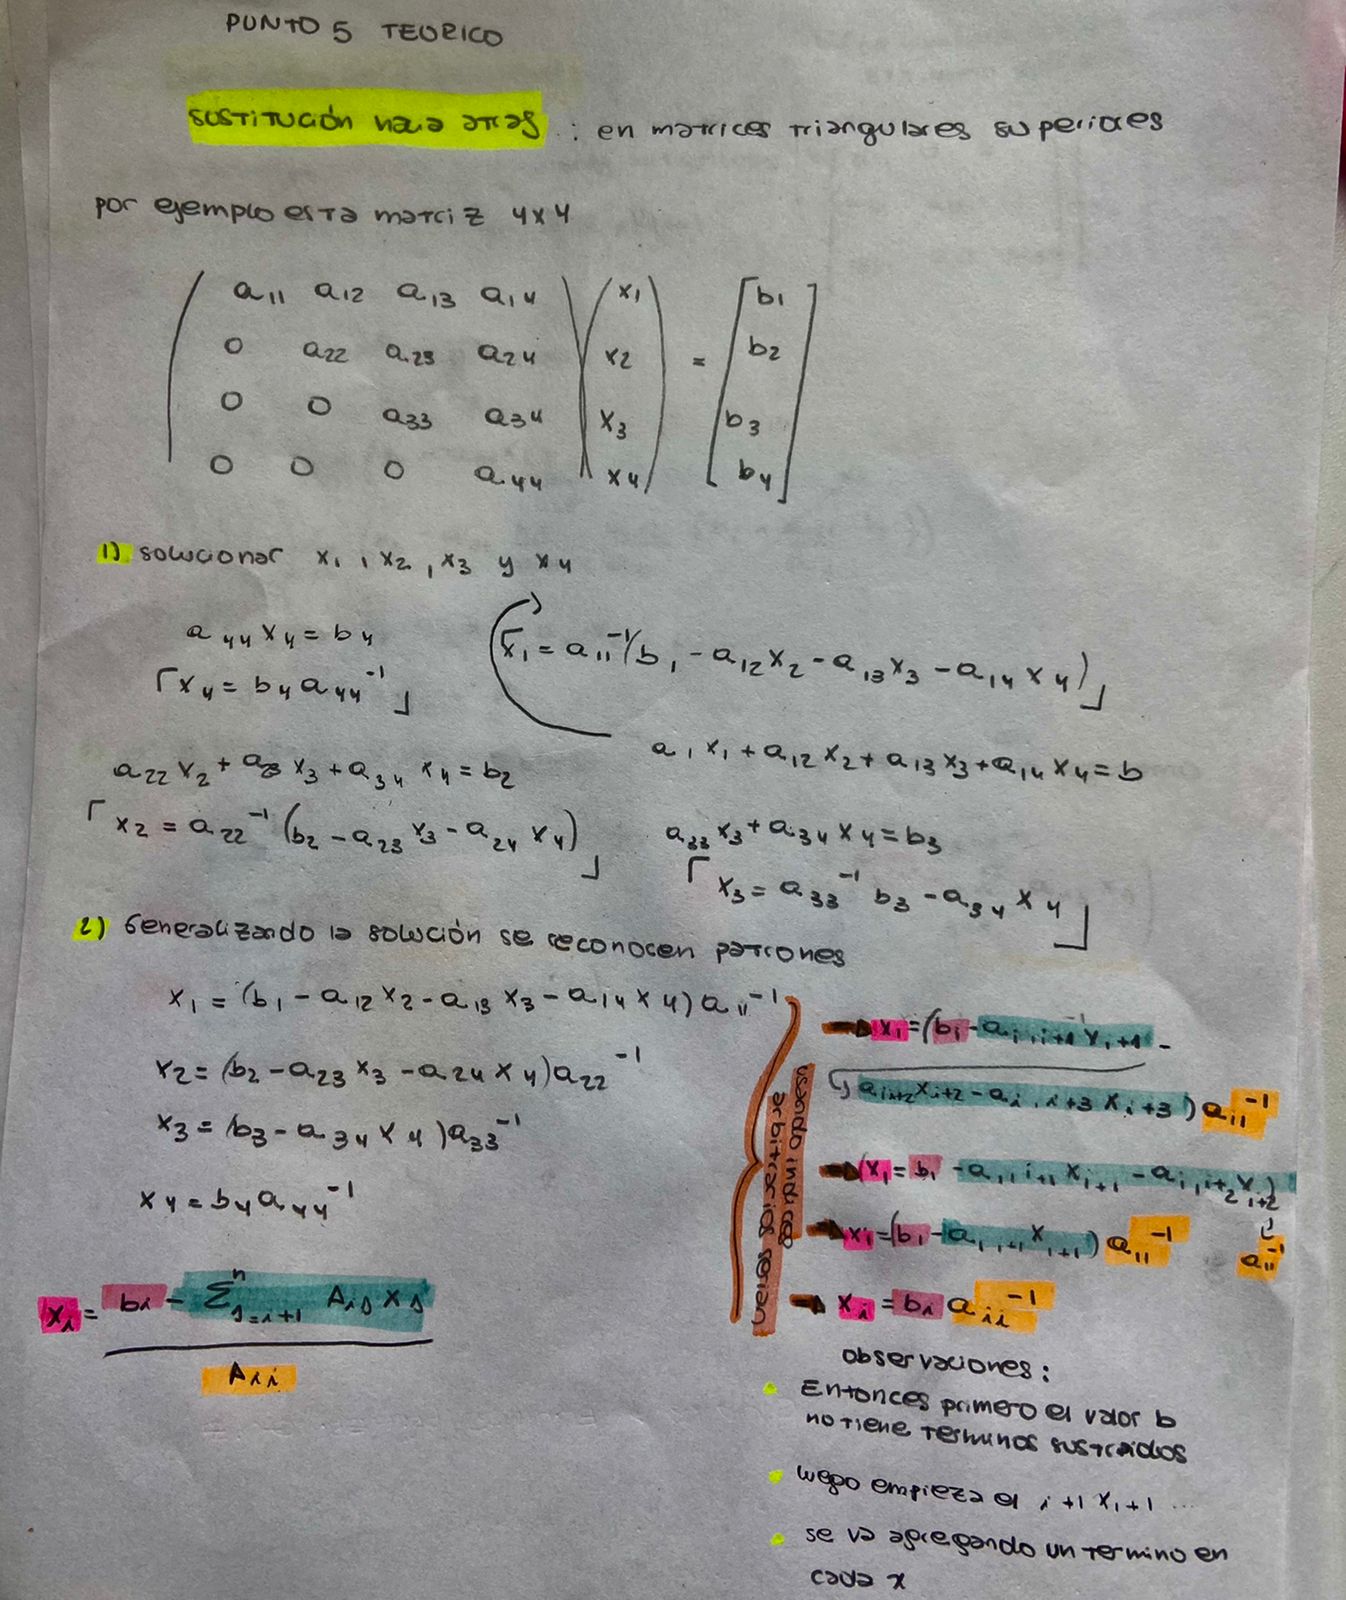 PUNTO 5 TEORICO
SUSTITUCIÓN hacia atras : en matrices triangulares superiores
por ejemplo esta matriz 4x4
a11 a12 a13 a14 x1 b1
0 a22 a23 a24 x2 = b2
0 0 a33 a34 x3 b3
0 0 0 a44 x4 b4
1) solucionar x1 , x2 , x3 y x4
a44 x4 = b4
x4 = b4 a44^-1
x1 = a11^-1 (b1 - a12 x2 - a13 x3 - a14 x4)
a1 x1 + a12 x2 + a13 x3 + a14 x4 = b
a22 x2 + a23 x3 + a34 x4 = b2
x2 = a22^-1 (b2 - a23 x3 - a24 x4)
a33 x3 + a34 x4 = b3
x3 = a33^-1 b3 - a34 x4
2) Generalizando la solución se reconocen patrones
x1 = (b1 - a12 x2 - a13 x3 - a14 x4) a11^-1
x2 = (b2 - a23 x3 - a24 x4) a22^-1
x3 = (b3 - a34 x4) a33^-1
x4 = b4 a44^-1
usando indices
arbitrarios serian
xi = (bi - ai,i+1 xi+1 -
ai,i+2 xi+2 - ai,i+3 xi+3) aii^-1
(xi = bi - ai,i+1 xi+1 - ai,i+2 xi+2)
aii^-1
xi = (bi - ai,i+1 xi+1) aii^-1
xi = bi aii^-1
xi = bi - Σ^n_j=i+1 Aij xj
Aii
observaciones:
Entonces primero el valor b
no tiene terminos sustraidos
luego empieza el i+1 xi+1 ...
se va agregando un termino en
cada x